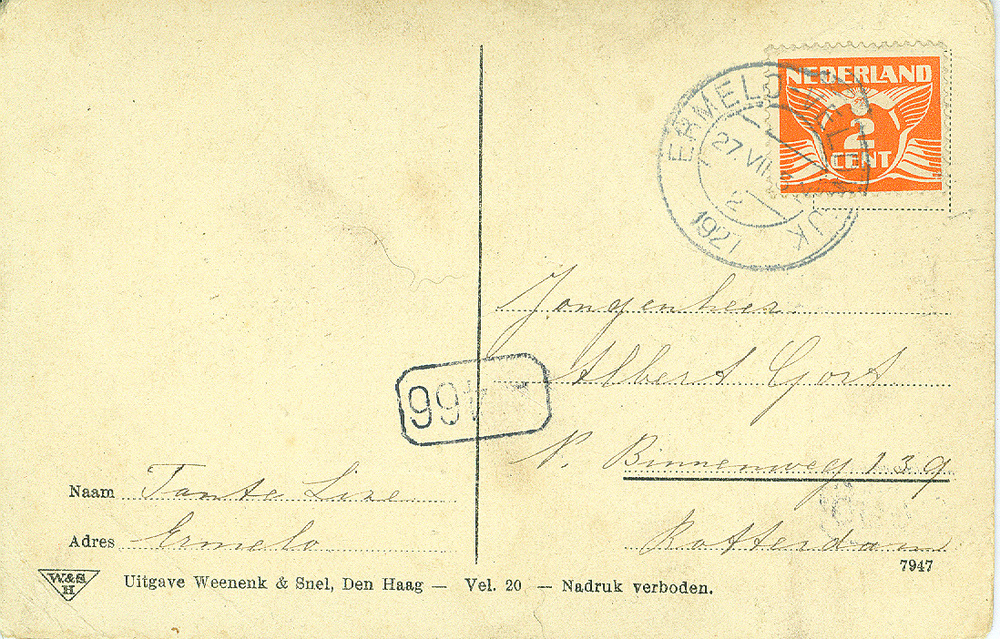 NEDERLAND
2
CENT
ERMELO-VELDWIJK
27.VII
2
1927
Jongenheer
Albert Gort
N. Binnenweg 139
Rotterdam
466
Naam Tante Lize
Adres Ermelo
7947
W.&S.
H
Uitgave Weenenk & Snel, Den Haag — Vel. 20 — Nadruk verboden.